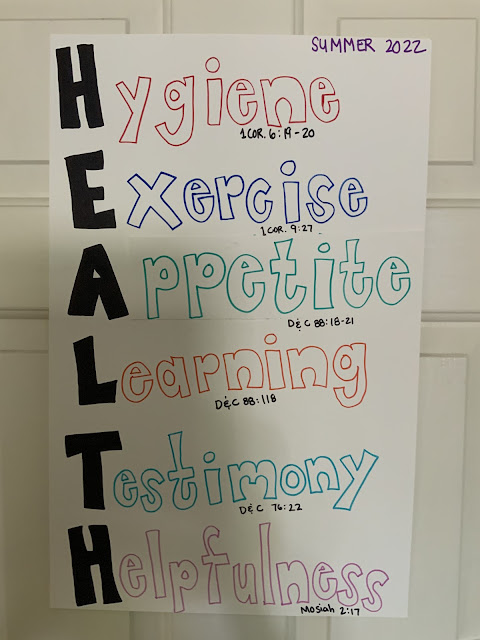 SUMMER 2022
Hygiene
1 COR. 6:19-20
Exercise
1 COR. 9:27
Appetite
D&C 88:18-21
Learning
D&C 88:118
Testimony
D&C 76:22
Helpfulness
Mosiah 2:17